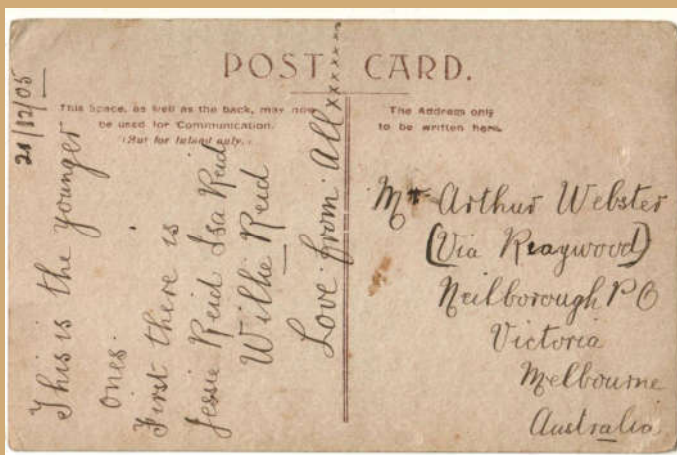 POST CARD.
This Space, as well as the back, may now
be used for Communication.
(But for Inland only.)
The Address only
to be written here.
21/12/05
This is the younger
ones.
First there is
Jessie Reid Isa Reid
Wilhie Reid
Love from All xxxxxxx
Mr Arthur Webster
(Via Reaywood)
Neilborough P O
Victoria
Melbourne
Australia